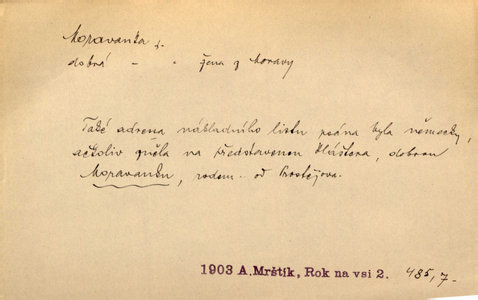 Moravanka f.
dobrá – „ žena z Moravy
Také adresa nákladního listu psána byla německy,
ačkoliv zněla na představenou kláštera, dobrou
Moravanku, rodem od Prostějova.
1903 A. Mrštík, Rok na vsi 2. 485,7-